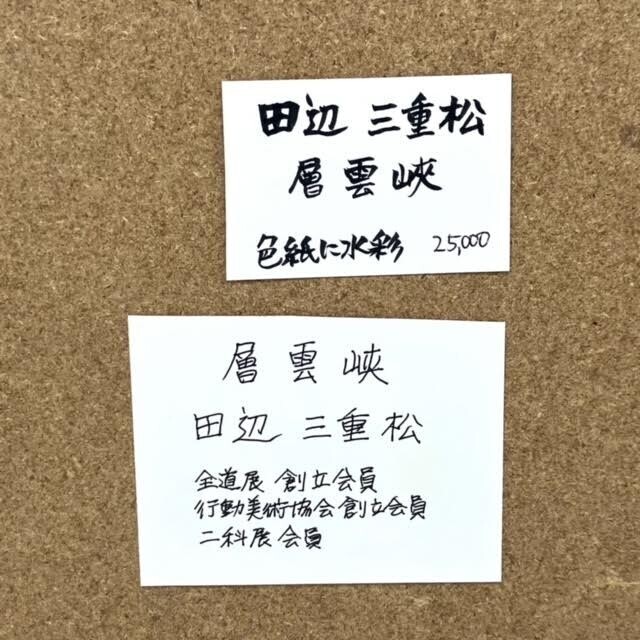 田辺 三重松
層雲峡
色紙に水彩 25,000
層雲峡
田辺 三重松
全道展 創立会員
行動美術協会 創立会員
二科展 会員